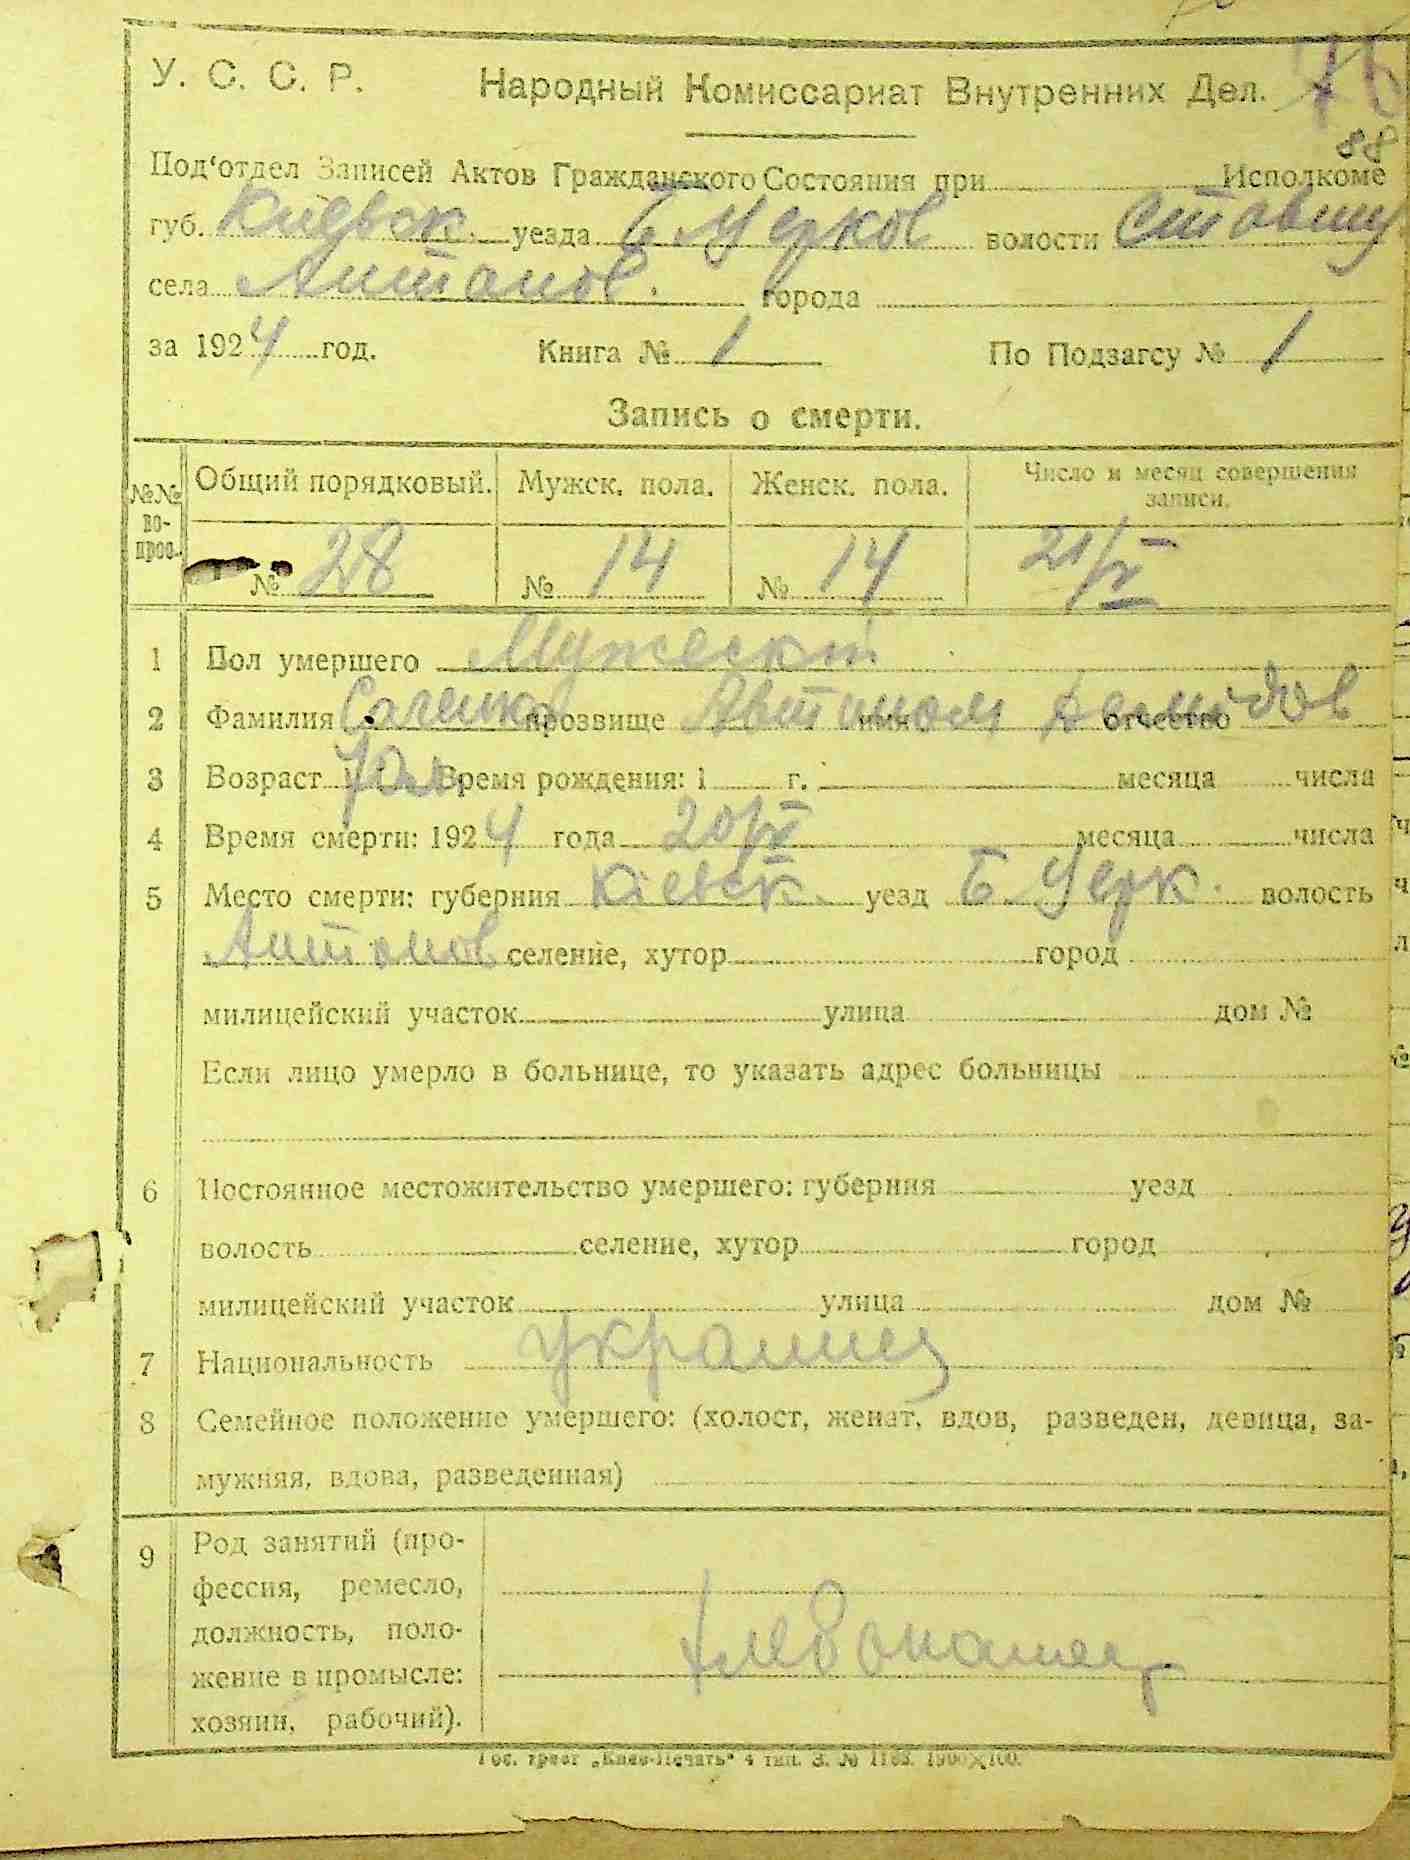 У. С. С. Р. Народный Комиссариат Внутренних Дел. 76
88
Под'отдел Записей Актов Гражданского Состояния при Исполкоме
губ. Киевск. уезда Б Церков волости Ставищ
села Антонов. города
за 1924 год. Книга № 1 По Подзагсу № 1
Запись о смерти.
№№ во-прос. Общий порядковый. Мужск. пола. Женск. пола. Число и месяц совершения записи.
№ 28 № 14 № 14 21/V
1 Пол умершего Мужеский
2 Фамилия прозвище Автоном имя Демидов отчество
3 Возраст 70 л Время рождения: 1 г. месяца числа
4 Время смерти: 1924 года 20/V месяца числа
5 Место смерти: губерния Кіевск. уезд Б Церк. волость
Антонов селение, хутор город
милицейский участок улица дом №
Если лицо умерло в больнице, то указать адрес больницы
6 Постоянное местожительство умершего: губерния уезд
волость селение, хутор город
милицейский участок улица дом №
7 Национальность украинец
8 Семейное положение умершего: (холост, женат, вдов, разведен, девица, за-
мужняя, вдова, разведенная)
9 Род занятий (про-
фессия, ремесло,
должность, поло- хлебопашец
жение в промысле:
хозяин, рабочий).
Гос. трест „Киев-Печать“ 4 тип. З. №